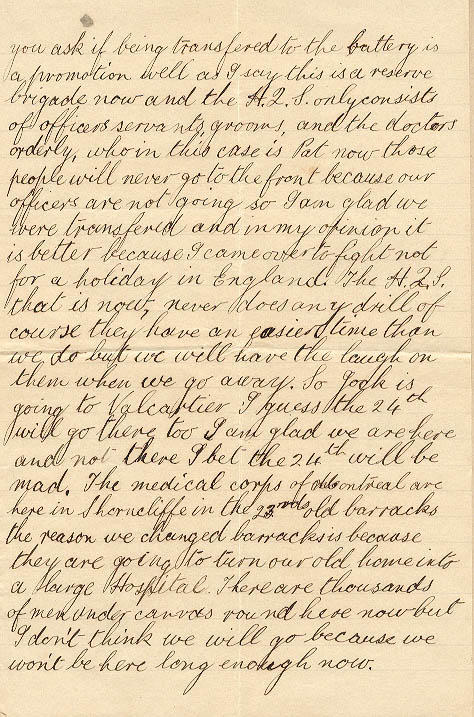 you ask if being transfered to the battery is
a promotion well as I say this is a reserve
brigade now and the H.Q.S. only consists
of officers servants, grooms, and the doctors
orderly, who in this case is Pat now those
people will never go to the front because our
officers are not going so I am glad we
were transfered and in my opinion it
is better because I came over to fight not
for a holiday in England. The H.Q.S.
that is now, never does any drill of
course they have an easier time than
we do but we will have the laugh on
them when we go away. So Jock is
going to Valcartier I guess the 24th
will go there too I am glad we are here
and not there I bet the 24th will be
mad. The medical corps of Montreal are
here in Shorncliffe in the 23rds old barracks
the reason we changed barracks is because
they are going to turn our old home into
a large Hospital. There are thousands
of men under canvas round here now but
I don't think we will go because we
won't be here long enough now.